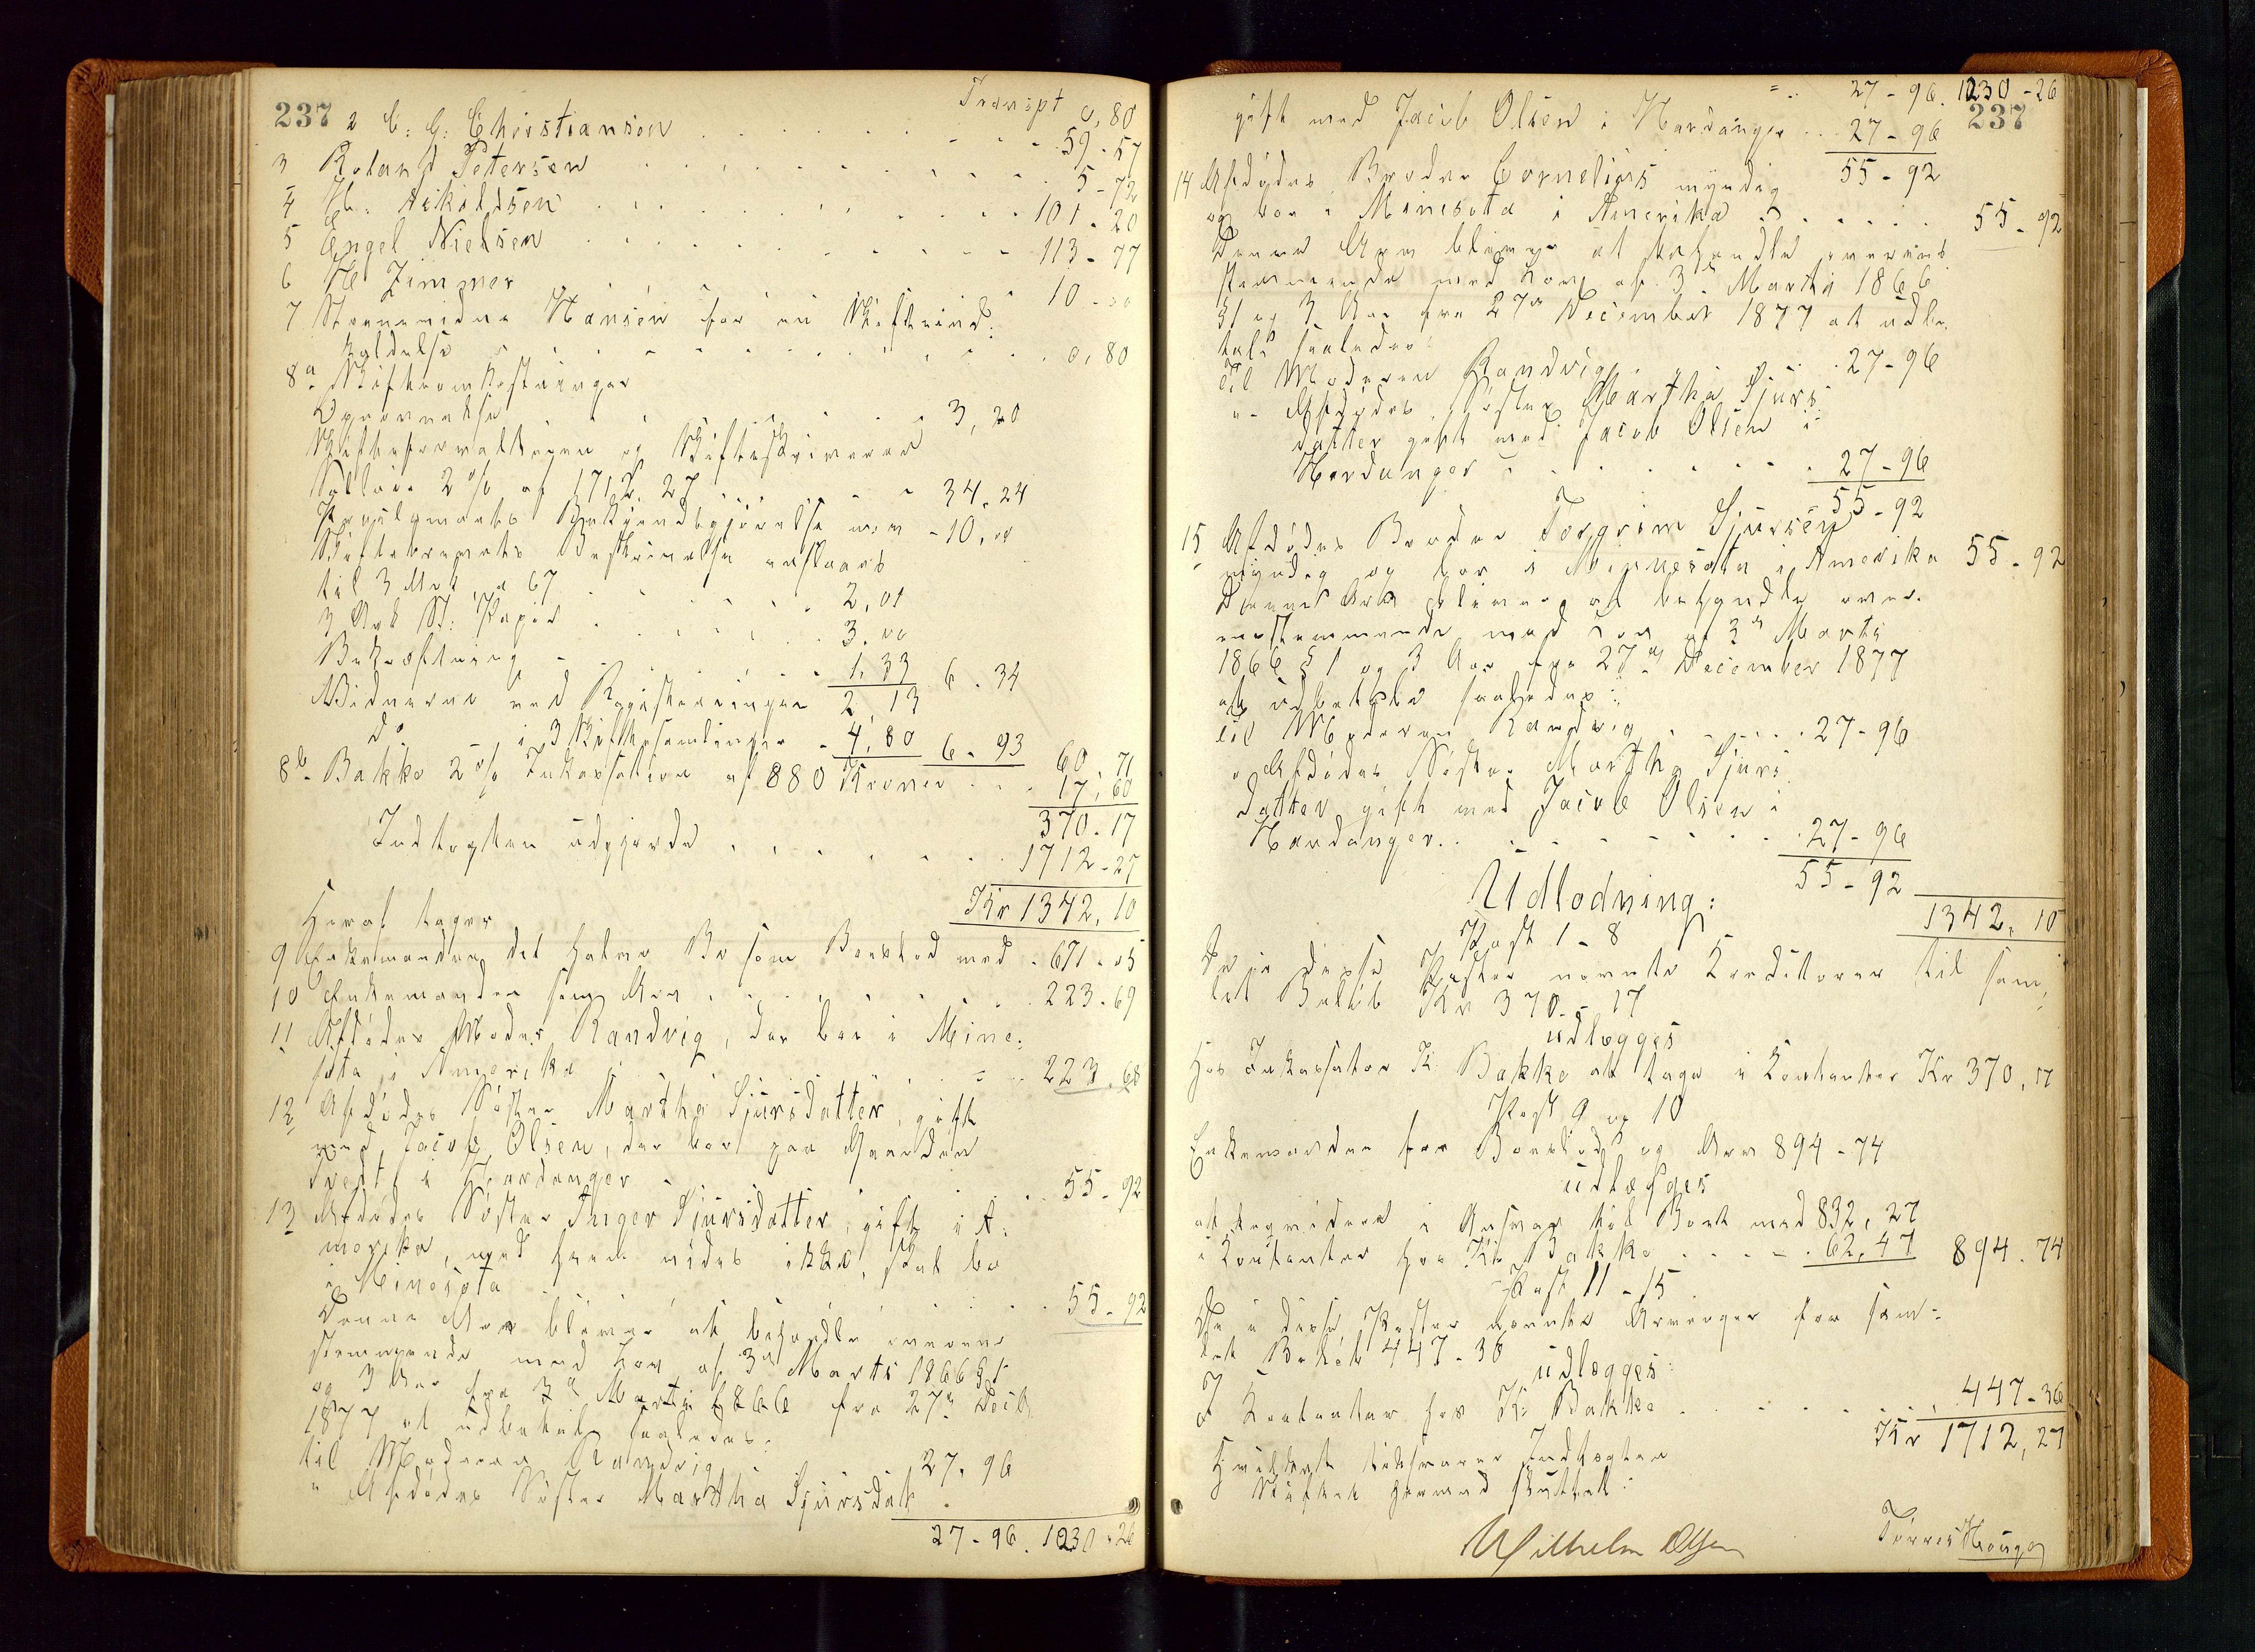 237
Transpt 0,80
2 C: G: Christiansen 59-57
3 Roland Petersen 5-72
4 Askildsen 101-20
5 Engel Nielsen 113-77
6 Zimmer 10-00
7 Stævnevidne Hansen for en Skifteind-
kaldelse 0,80
8a Skifteomkostninger
Oprævnelse 3,20
Skifteforvalteren og Skifteskriveren
Sallær 2% af 1712,27 34-24
Proclamaets Bekjendtgjørelse m.v. 10,00
Skiftebrevets Beskrivelse anslaaes
til 3 Ark a 67 2,01
3 Ark St: Papir 3,00
Bekræftning 1,33 6-34
Vidnerne ved Registreringen 2,13
do i 3 Skiftesamlinger 4,80 6-93 60,71
8b Bakke 2% Inkassation af 880 Kroner 17,60
370-17
Indtægten udgjorde 1712-27
Kr 1342,10
Heraf tager
9 Enkemanden det halve Bo som Boeslod med 671-05
10 Enkemanden som Arv 223-69
11 Afdødes Moder Randvig, der bor i Mine-
sota i Amerika 223-68
12 Afdødes Søster Martha Sjursdatter, gift
med Jacob Olsen, der bor paa Gaarden
Tvedt i Hardanger 55-92
13 Afdødes Søster Inger Sjursdatter, gift i A-
merika, med hvem vides ikke, skal bo
i Minesota 55-92
Denne Arv bliver at behandle overens-
stemmende med Lov af 3de Marts 1866 § 1
og 3 Aar fra 3de Marts 1866 fra 27de Decb.
1877 at udbetale saaledes:
til Moderen Randvig 27,96
" Afdødes Søster Martha Sjursdatt
27-96. 1230-26
27-96. 1230-26
237
gift med Jacob Olsen i Hardanger 27-96
55-92
14 Afdødes Broder Cornelius myndig
og bor i Minesota i Amerika 55-92
Denne Arv bliver at behandle overens
stemmende med Lov af 3de Marts 1866
§1 og 3 Aar fra 27de December 1877 at udbe-
tale saaledes:
til Moderen Randvig 27-96
"- Afdødes Søster Martha Sjurs-
datter gift med Jacob Olsen i
Hardanger 27-96
55-92
15 Afdødes Broder Torgrim Sjursen
myndig og bor i Minnesota i Amerika 55-92
Denne Arv bliver at behandle over-
eensstemmende med Lov af 3de Marts
1866 § 1 og 3 Aar fra 27de December 1877
at udbetale saaledes:
til Moderen Randvig 27-96
" Afdødes Søster Martha Sjurs
datter gift med Jacob Olsen i
Hardanger 27-96
55-92
1342,10
Udlodning:
Post 1-8
De i disse Poster nævnte Kreditorer til sam-
let Beløb Kr 370-17
udlægges
Hos Inkassator K. Bakke at tage i Kontanter Kr 370,17
Post 9 og 10
Enkemanden for Boeslod og Arv 894-74
udlægges
at liqvidere i Ansvar til Boet med 832,27
i Kontanter hos K. Bakke 62,47 894-74
Post 11-15
De i disse Poster nævnte Arvinger for sam-
let Beløb 447-36
udlægges:
I Kontanter hos K. Bakke 447-36
Kr 1712,27
Hvilket tilsvarer Indtægten
Skiftet hermed sluttet:
Wilhelm Olsen
Tørres Hauge